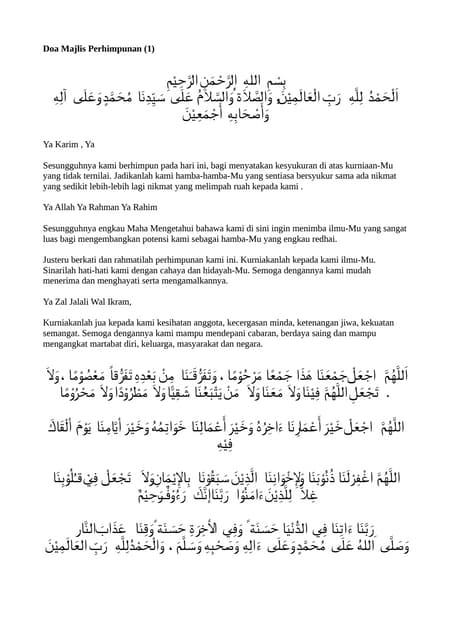 Doa Majlis Perhimpunan (1)
بِسْمِ اللهِ الرَّحْمَنِ الرَّحِيْمِ
اَلْحَمْدُ لِلَّهِ رَبِّ الْعَالَمِيْنَ, وَالصَّلَاةُ وَالسَّلَامُ عَلَى سَيِّدِنَا مُحَمَّدٍ وَعَلَى آلِهِ
وَأَصْحَابِهِ أَجْمَعِيْنَ
Ya Karim , Ya
Sesungguhnya kami berhimpun pada hari ini, bagi menyatakan kesyukuran di atas kurniaan-Mu
yang tidak ternilai. Jadikanlah kami hamba-hamba-Mu yang sentiasa bersyukur sama ada nikmat
yang sedikit lebih-lebih lagi nikmat yang melimpah ruah kepada kami .
Ya Allah Ya Rahman Ya Rahim
Sesungguhnya engkau Maha Mengetahui bahawa kami di sini ingin menimba ilmu-Mu yang sangat
luas bagi mengembangkan potensi kami sebagai hamba-Mu yang engkau redhai.
Justeru berkati dan rahmatilah perhimpunan kami ini. Kurniakanlah kepada kami ilmu-Mu.
Sinarilah hati-hati kami dengan cahaya dan hidayah-Mu. Semoga dengannya kami mudah
menerima dan menghayati serta mengamalkannya.
Ya Zal Jalali Wal Ikram,
Kurniakanlah jua kepada kami kesihatan anggota, kecergasan minda, ketenangan jiwa, kekuatan
semangat. Semoga dengannya kami mampu mendepani cabaran, berdaya saing dan mampu
mengangkat martabat diri, keluarga, masyarakat dan negara.
اَللَّهُمَّ اجْعَلْ جَمْعَنَا هَذَا جَمْعًا مَرْحُوْمًا ، وَتَفَرُّقَنَا مِنْ بَعْدِهِ تَفَرُّقاً مَعْصُوْمًا ، وَلاَ
تَجْعَلِ اللَّهُمَّ فِيْنَا وَلاَ مَعَنَا وَلاَ مَنْ يَتْبَعُنَا شَقِيًّا وَلاَ مَطْرُوْدًا وَلاَ مَحْرُوْمًا .
اللَّهُمَّ اجْعَلْ خَيْرَ أَعْمَارِنَا ءَاخِرُهُ وَخَيْرَ أَعْمَالِنَا خَوَاتِمُهُ وَخَيْرَ أَيَّامِنَا يَوْمَ أَلْقَاكَ
فِيْهِ
اللَّهُمَّ اغْفِرْلَنَا ذُنُوْبَنَا وَلِإِخْوَانِنَا الَّذِيْنَ سَبَقُوْنَا بِالإِيْمَانِ وَلاَ تَجْعَلْ فِيْ قُلُوْبِنَا
غِلاًّ لِلَّذِيْنَ ءَامَنُوْا رَبَّنَا إِنَّكَ رَءُوْفٌ رَحِيْمٌ
رَبَّنَا ءَاتِنَا فِي الدُّنْيَا حَسَنَةً وَفِي الأَخِرَةِ حَسَنَةً وَقِنَا عَذَابَ النَّارِ
وَصَلَّى اَللهُ عَلَى مُحَمَّدٍ وَعَلَى ءَالِهِ وَصَحْبِهِ وَسَلَّمَ ، وَالْحَمْدُ لِلَّهِ رَبِّ العَالَمِيْنَ